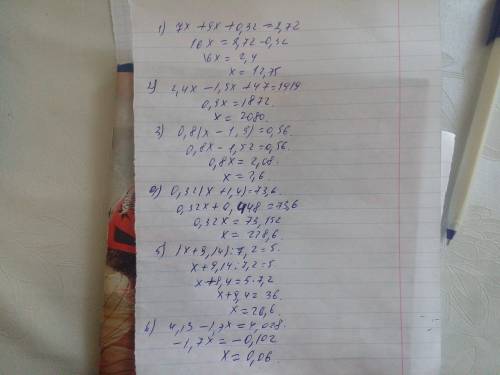 1) 7x + 9x + 0,32 = 2,72
16x = 2,72 - 0,32
16x = 2,4
x = 12,75
2) 2,4x - 1,5x + 47 = 1919
0,9x = 1872
x = 2080
3) 0,8(x - 1,9) = 0,56
0,8x - 1,52 = 0,56
0,8x = 2,08
x = 2,6
4) 0,32(x + 1,4) = 73,6
0,32x + 0,448 = 73,6
0,32x = 73,152
x = 228,6
5) (x + 9,14) : 7,2 = 5
x + 9,14 : 7,2 = 5
x + 9,4 = 5 · 7,2
x + 9,4 = 36
x = 26,6
6) 4,13 - 1,7x = 4,028
-1,7x = -0,102
x = 0,06